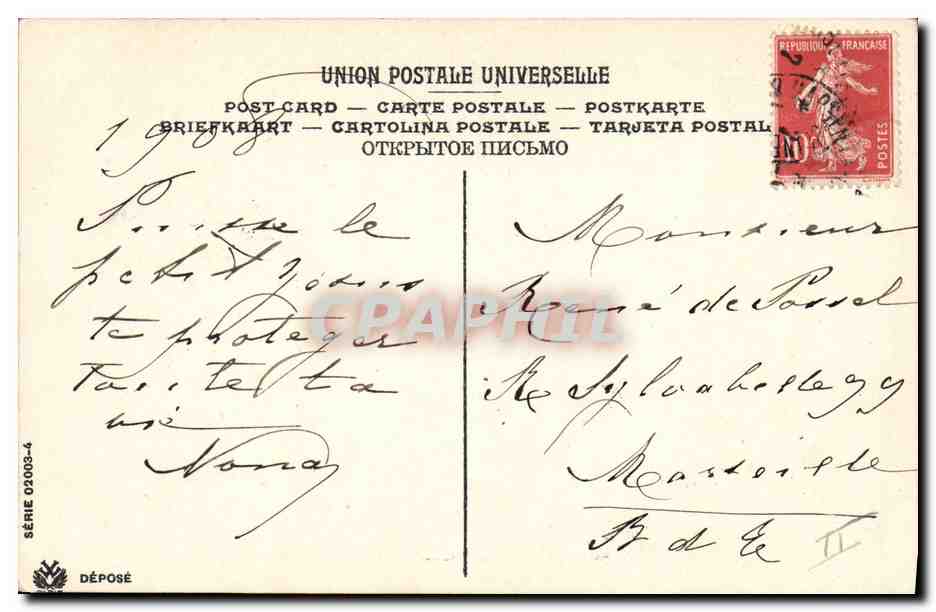 UNION POSTALE UNIVERSELLE
POST CARD — CARTE POSTALE — POSTKARTE
BRIEFKAART — CARTOLINA POSTALE — TARJETA POSTAL
ОТКРЫТОЕ ПИСЬМО
REPUBLIQUE FRANÇAISE
10
POSTES
1908
Puisse le
petit Jésus
te protéger
toute ta
vie
Nona
Monsieur
René de Possel
R Sylvabelle 99
Marseille
B d
II
CPAPHIL
SÉRIE 02003-4
DÉPOSÉ